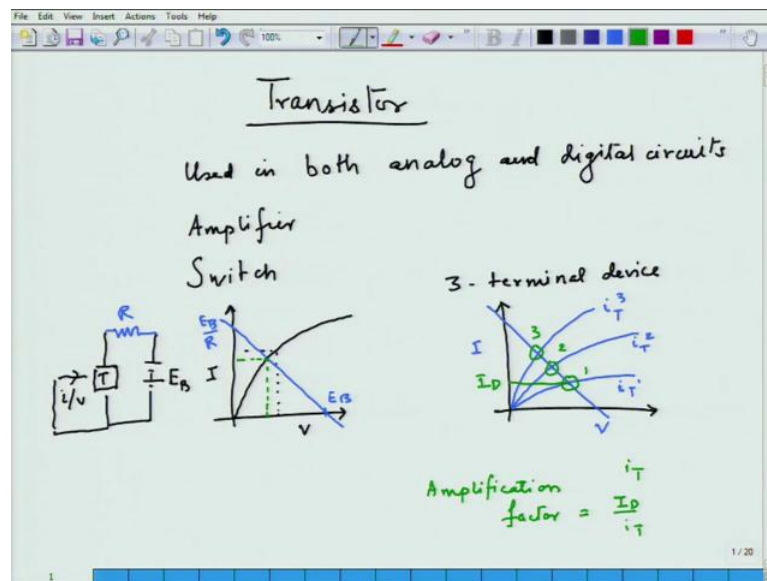 File Edit View Insert Actions Tools Help
100%
B I
Transistor
Used in both analog and digital circuits
Amplifier
Switch
3-terminal device
R
T
i/v
E_B
E_B/R
I
E_B
V
I
I_D
3
2
1
i_T^3
i_T^2
i_T^1
V
i_T
Amplification
factor = I_D/i_T
1 / 20
1